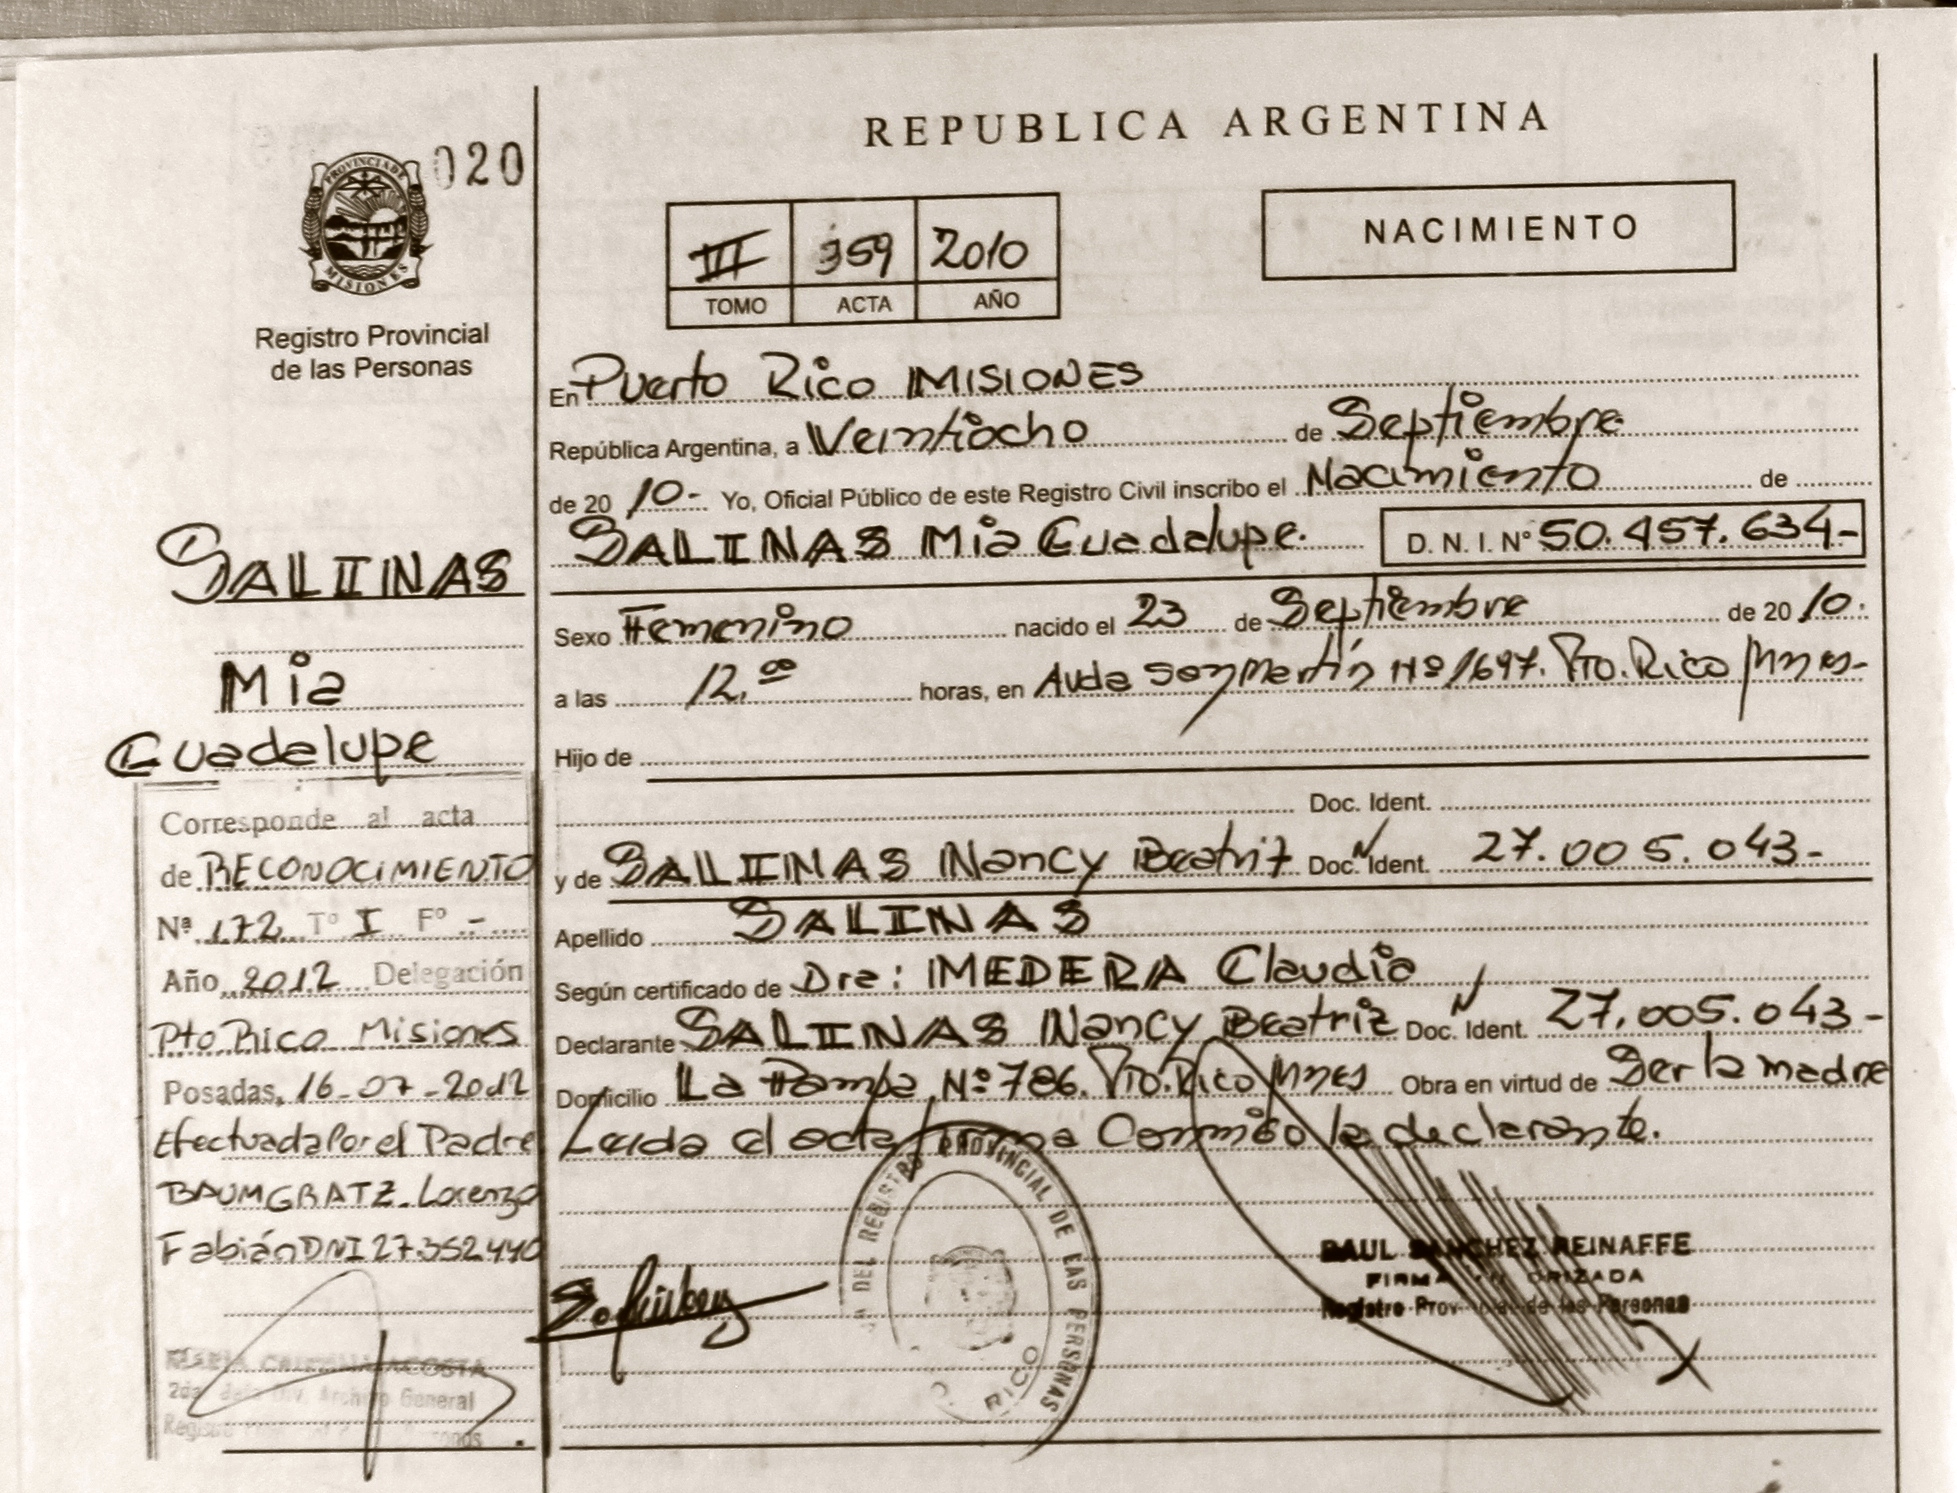 REPUBLICA ARGENTINA
020
PROVINCIA DE
MISIONES
Registro Provincial
de las Personas
III 359 2010
TOMO ACTA AÑO
NACIMIENTO
En Puerto Rico MISIONES
República Argentina, a Veintiocho de Septiembre
de 20 10- Yo, Oficial Público de este Registro Civil inscribo el Nacimiento de
SALINAS Mia Guadalupe. D. N. I. Nº 50.457.634-
Sexo Femenino nacido el 23 de Septiembre de 20 10.
a las 12.ºº horas, en Avda San Martín Nº 1697. Pto. Rico Mnes-
Hijo de
Doc. Ident.
y de SALINAS Nancy Beatriz Doc. Ident. 27.005.043-
Apellido SALINAS
Según certificado de Dra: MEDERA Claudia
Declarante SALINAS Nancy Beatriz Doc. Ident. 27.005.043-
Domicilio La Pampa Nº 786. Pto. Rico Mnes Obra en virtud de Ser la madre
Leida el acta firma Conmigo la declarante.
SALINAS
Mia
Guadalupe
Corresponde al acta
de RECONOCIMIENTO
Nª 172 Tº I Fº -
Año 2012 Delegación
Pto Rico Misiones
Posadas, 16-07-2012
Efectuada Por el Padre
BAUMGRATZ Lorenzo
Fabián DNI 27352440
MARIA CRISTINA ACOSTA
2da. Div. Archivo General
DEL REGISTRO PROVINCIAL DE LAS PERSONAS
RICO
RAUL SANCHEZ REINAFFE
FIRMA AUTORIZADA
Registro Provincial de las Personas